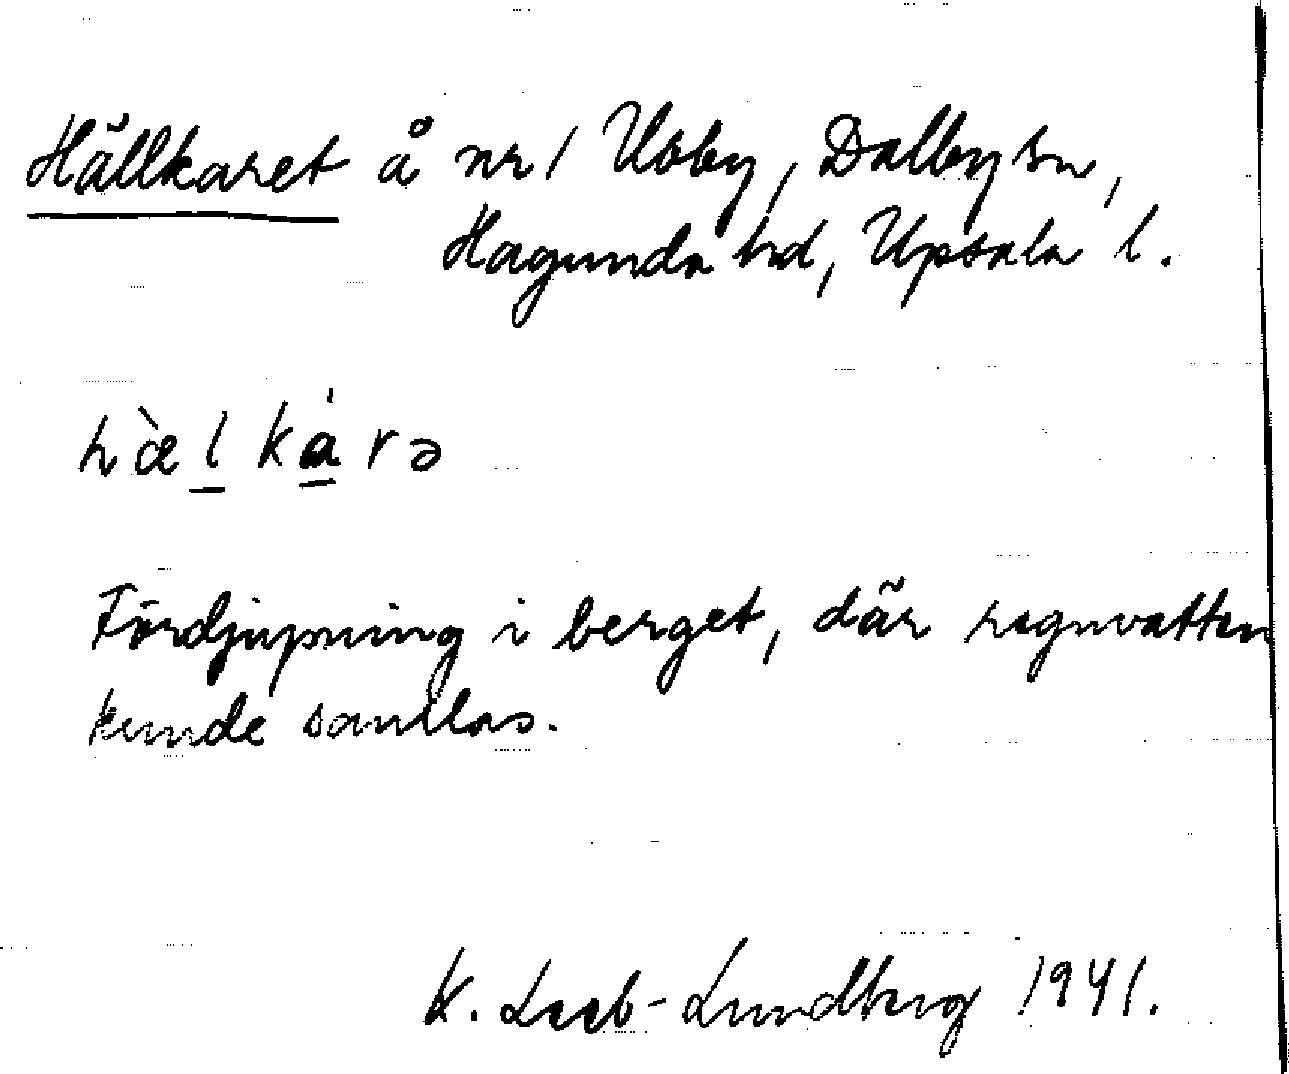 Hällkaret å nr 1 Ubby, Dalby sn,
Hagunda hd, Upsala l.
hæ̀l kȧrə
Fördjupning i berget, där regnvatten
kunde samlas.
K. Leeb-Lundberg 1941.